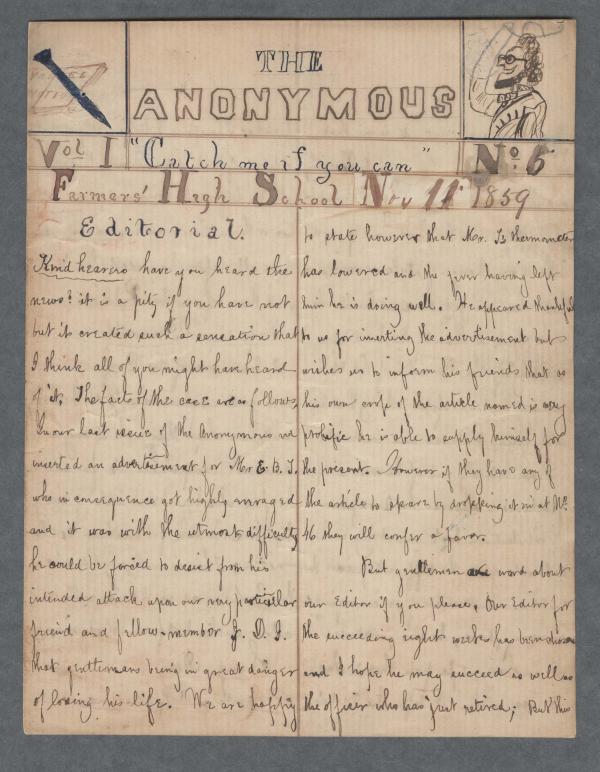 THE
ANONYMOUS
Vol I "Catch me if you can" No. 5
Farmers' High School Nov 11 1859
Editorial.
Kind hearers have you heard the
news? it is a pity if you have not
but it created such a sensation that
I think all of you might have heard
of it. The facts of the case are as follows,
In our last issue of the Anonymous we
inserted an advertisement for Mr E. B. T.
who in consequence got highly enraged
and it was with the utmost difficulty
he could be forced to desist from his
intended attack upon our very particular
friend and fellow-member J. D. I.
that gentlemans being in great danger
of losing his life. We are happy
to state however that Mr. Ts thermometer
has lowered and the fever having left
him he is doing well. He appeared thankful
to us for inserting the advertisement but
wishes us to inform his friends that as
his own crop of the article named is very
prolific he is able to supply himself for
the present. However if they have any of
the article to spare by dropping it in at No.
46 they will confer a favor.
But gentlemen a word about
our Editor if you please. Our Editor for
the succeeding eight weeks has been chosen
and I hope he may succeed as well as
the officer who has just retired; But this